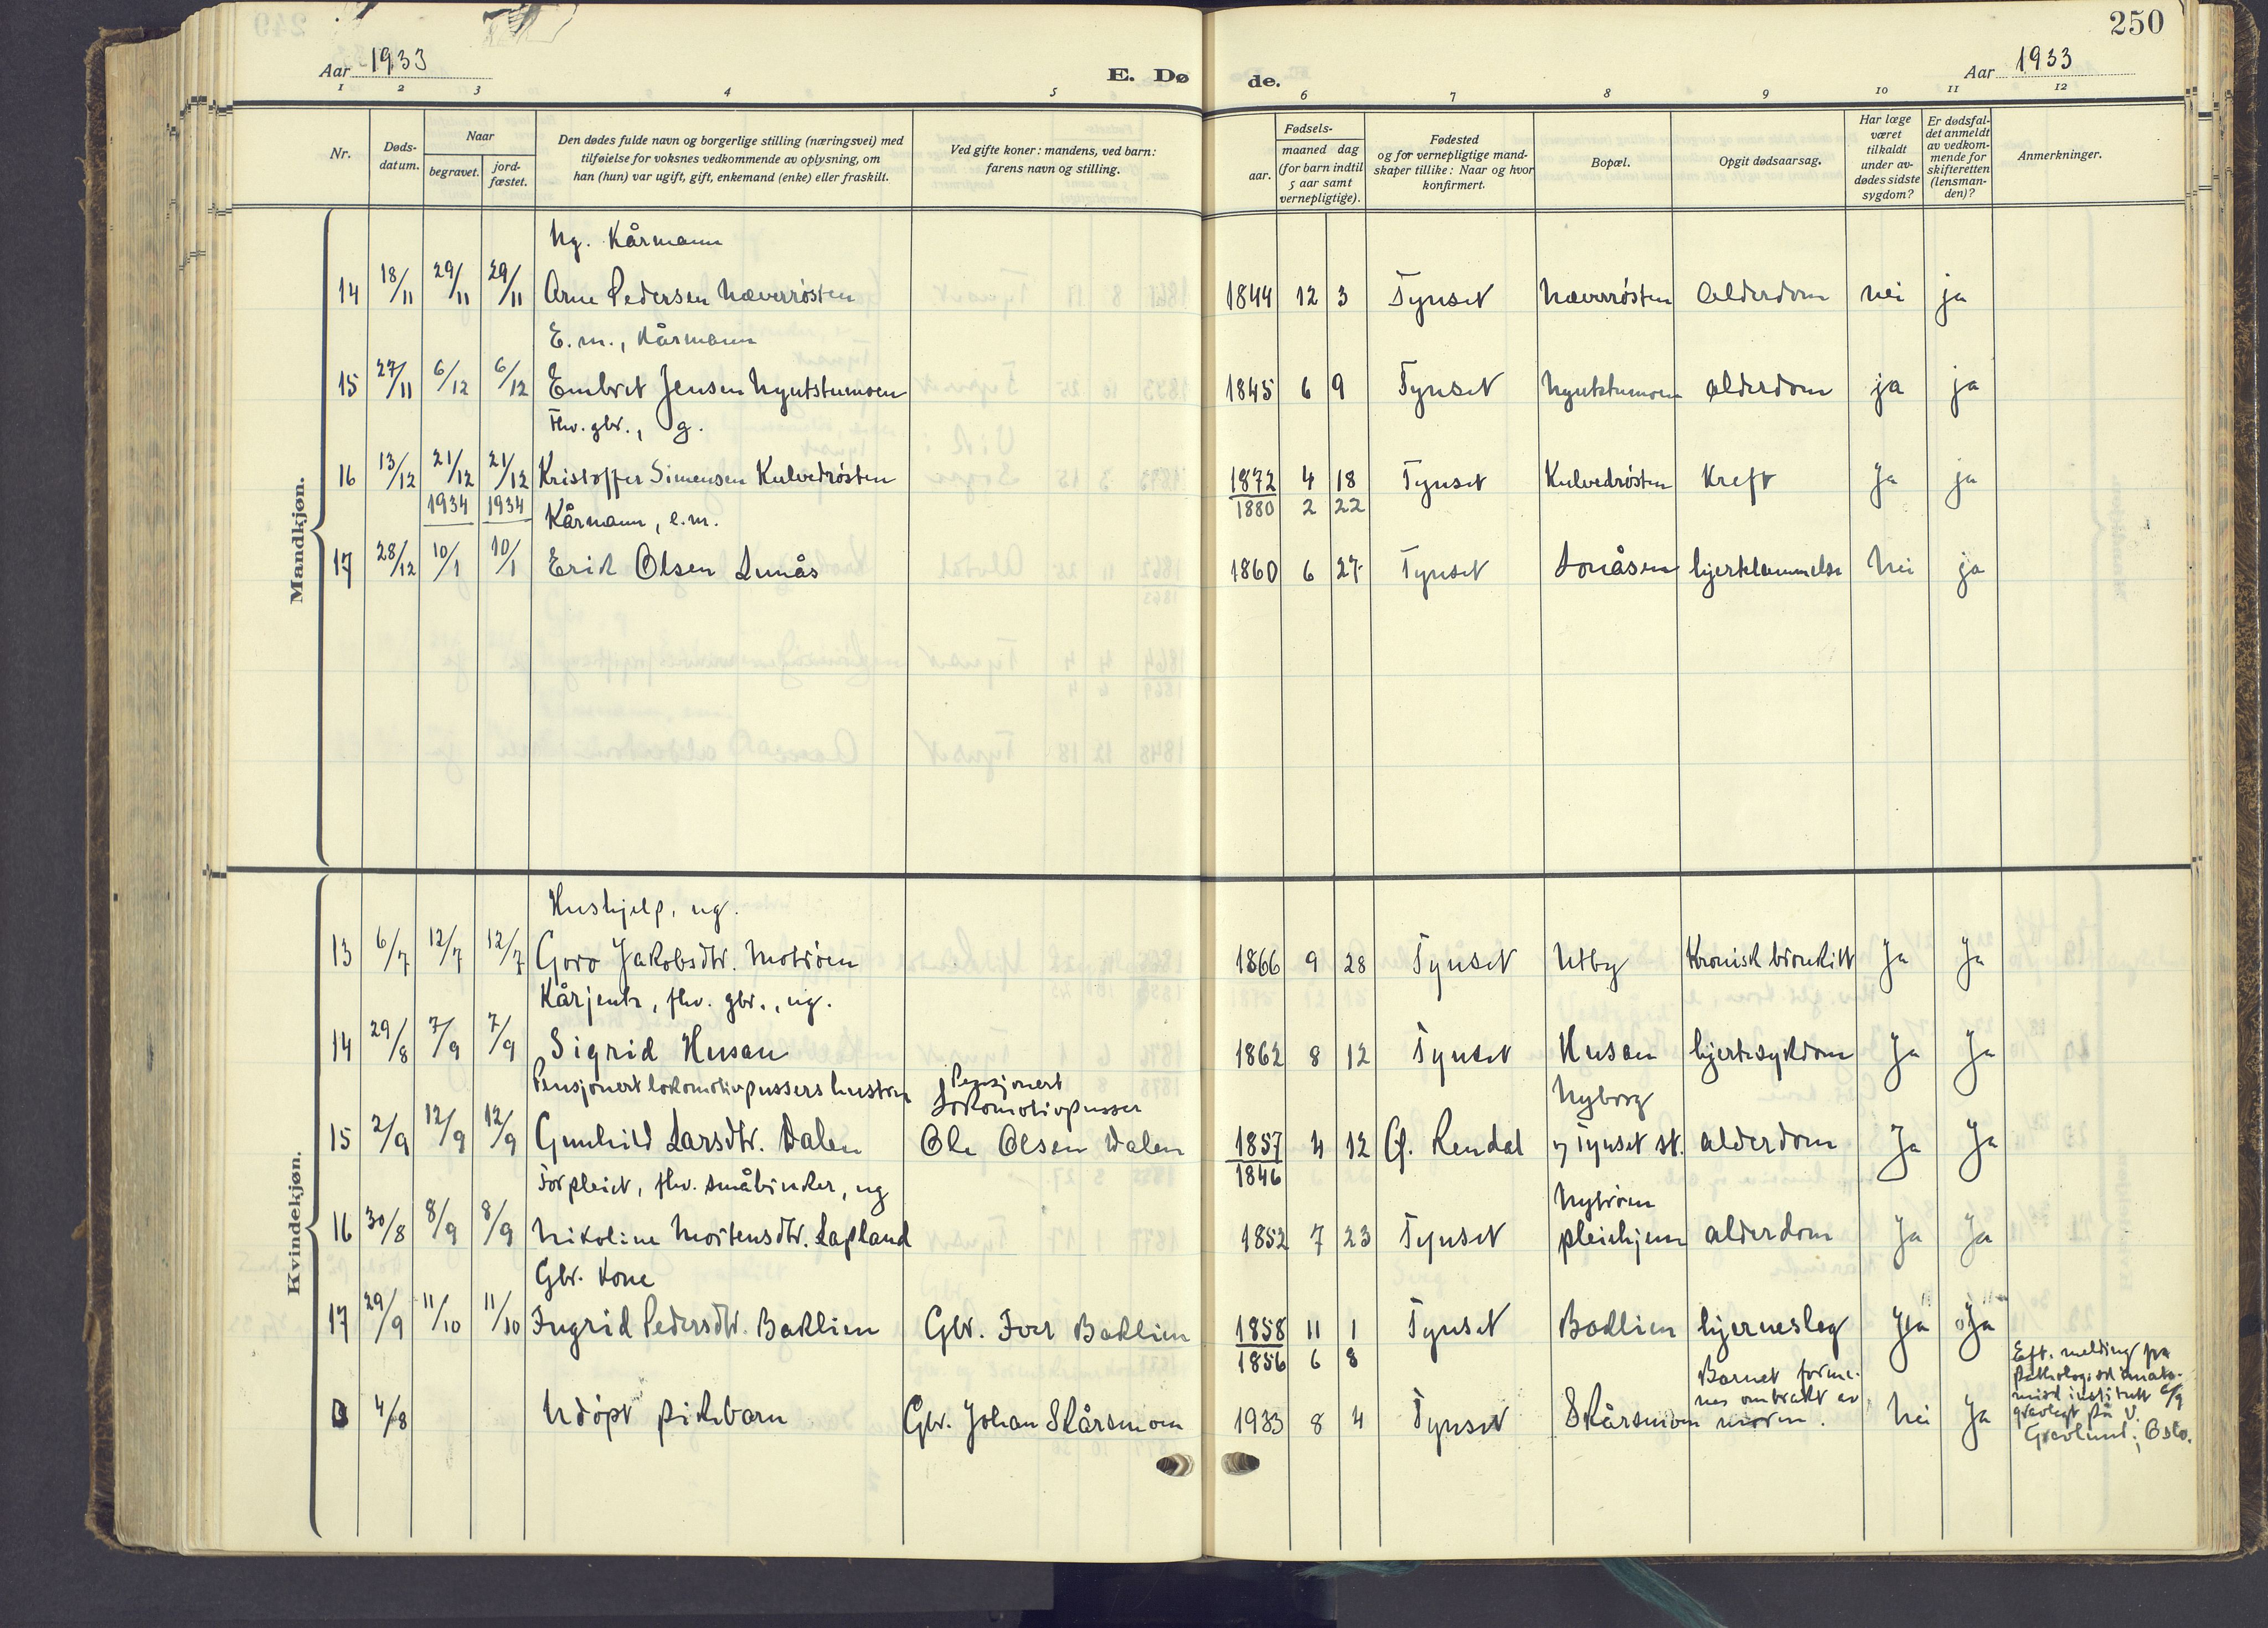 250
Aar 1933
E. Dø
de.
Aar 1933
1 2 3 4 5 6 7 8 9 10 11 12
Nr.
Døds-
datum.
Naar
begravet.
jord-
fæstet.
Den dødes fulde navn og borgerlige stilling (næringsvei) med
tilføielse for voksnes vedkommende av oplysning, om
han (hun) var ugift, gift, enkemand (enke) eller fraskilt.
Ved gifte koner: mandens, ved barn:
farens navn og stilling.
Fødsels-
aar.
maaned dag
(for barn indtil
5 aar samt
vernepligtige).
Fødested
og for vernepligtige mand-
skaper tillike: Naar og hvor
konfirmert.
Bopæl.
Opgit dødsaarsag.
Har læge
været
tilkaldt
under av-
dødes sidste
sygdom?
Er dødsfal-
det anmeldt
av vedkom-
mende for
skifteretten
(lensman-
den)?
Anmerkninger.
Mandkjøn.
Ug. Kårmann
14 18/11 29/11 29/11 Arne Pedersen Næverrösten 1844 12 3 Tynset Næverrösten Alderdom nei ja
E.m., Kårmann
15 27/11 6/12 6/12 Embret Jensen Nyutstumoen 1845 6 9 Tynset Nyutstumoen alderdom ja ja
Fhv. gbr., g.
16 13/12 21/12 21/12 Kristoffer Simensen Kulvedrösten 1872 4 18 Tynset Kulvedrösten Kreft ja ja
1934 1934 Kårmann, e.m. 1880 2 22
17 28/12 10/1 10/1 Erik Olsen Lunås 1860 6 27 Tynset Lonåsen hjertelammelse Nei ja
Kvindekjøn.
Hushjelp, ug.
13 6/7 12/7 12/7 Goro Jakobsdtr. Motröen 1866 9 28 Tynset Utby Kronisk bronkitt Ja Ja
Kårjente, fhv. gbr., ug.
14 29/8 7/9 7/9 Sigrid Husan 1862 8 12 Tynset Husan hjertesykdom Ja Ja
Pensjonert lokomotivpussers hustru Pensjonert
Lokomotivpusser Nyborg
15 2/9 12/9 12/9 Gunhild Larsdtr. Dalen Ole Olsen Dalen 1857 4 12 Ø. Rendal Tynset st. alderdom Ja Ja
Forpleiet, fhv. småbruker, ug 1846 Nytröen
16 30/8 8/9 8/9 Nikoline Mortensdtr. Lapland 1852 7 23 Tynset pleiehjem alderdom Ja Ja
Gbr. kone
17 29/9 11/10 11/10 Ingrid Pedersdtr. Baklien Gbr. Iver Baklien 1858 11 1 Tynset Baklien hjerneslag Ja Ja
1856 6 8
Barnet forme-
nes ombrakt av
moren.
D 4/8 Udöpt pikebarn Gbr. Johan Skårsmoen 1933 8 4 Tynset Skårsmoen Nei Ja
Eft. melding fra
Pathologisk anato-
misk institutt 6/9
gravlagt på V.
Gravlund, Oslo.